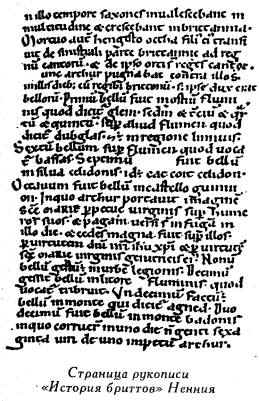 n illo tempore saxones inualescebant in
multitudine & crescebant in brittannia.
Mortuo aut̄ hengisto octha fili᾽ ei᾽ transi
uit de sinistrali parte brittanniae ad reg
nū cantorū. & de ipso orti s̄ reges cantoꝝ.
Tunc arthur pugnabat contra illos.
in illis dieb; cū regib; brittonū. s; ipse dux erat
bellorū. Primū bellū fuit in ostiū flumi
nis quod dicit̄ glein. sc̄dm & t̄ciū & qr̄
tū & quintū. sup̄ aliud flumen quod
dicit̄ dubglas. & ē in regione linnuis
Sextū bellum sup̄ flumen quod uoca
t̄ bassas. Septimū fuit bellū
in silua celidonis. id ē cat coit celidon.
Octauum fuit bellū in castello guinni
on. In quo arthur portauit imaginē
sc̄e mariȩ p̄petuȩ uirginis sup̄ hume
ros suos. & pagani uersi s̄ in fugā in
illo die. & cedes magna fuit sup̄ illos.
p̄ uirtutem dn̄i nr̄i ih̄u xp̄i & p̄ uirtutē
sc̄e mariȩ uirginis genitricis ei᾽. Nonū
bellū gestū ē in urbe legionis. Decimū
gessit bellū in litore fluminis quod
uocat̄ tribruit. Undecimū factū ē
bellū in monte qui dicit̄ agned. Duo
decimū fuit bellū in monte badonis
inquo corruer̄ in uno die nongenti sexa
ginta uiri de uno impetu arthur.
Страница рукописи
«История бриттов» Ненния